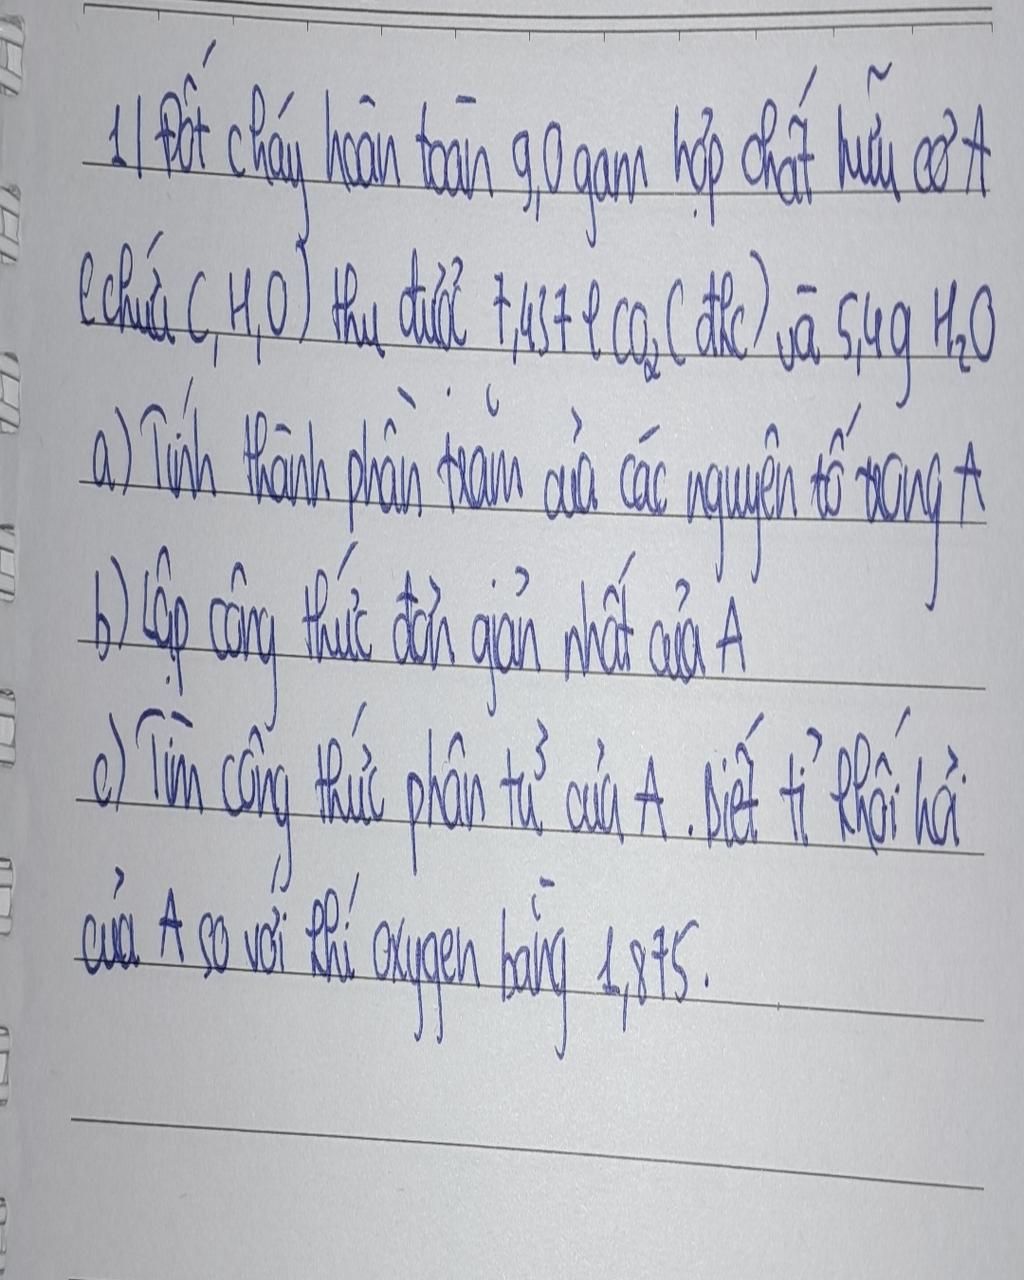 1) Đốt cháy hoàn toàn 9,0 gam hợp chất hữu cơ A
(chứa C, H, O) thu được 7,437 l CO₂ (đkc) và 5,4g H₂O
a) Tính thành phần trăm của các nguyên tố trong A
b) Lập công thức đơn giản nhất của A
c) Tìm công thức phân tử của A. Biết tỉ khối hơi
của A so với khí oxygen bằng 1,875.